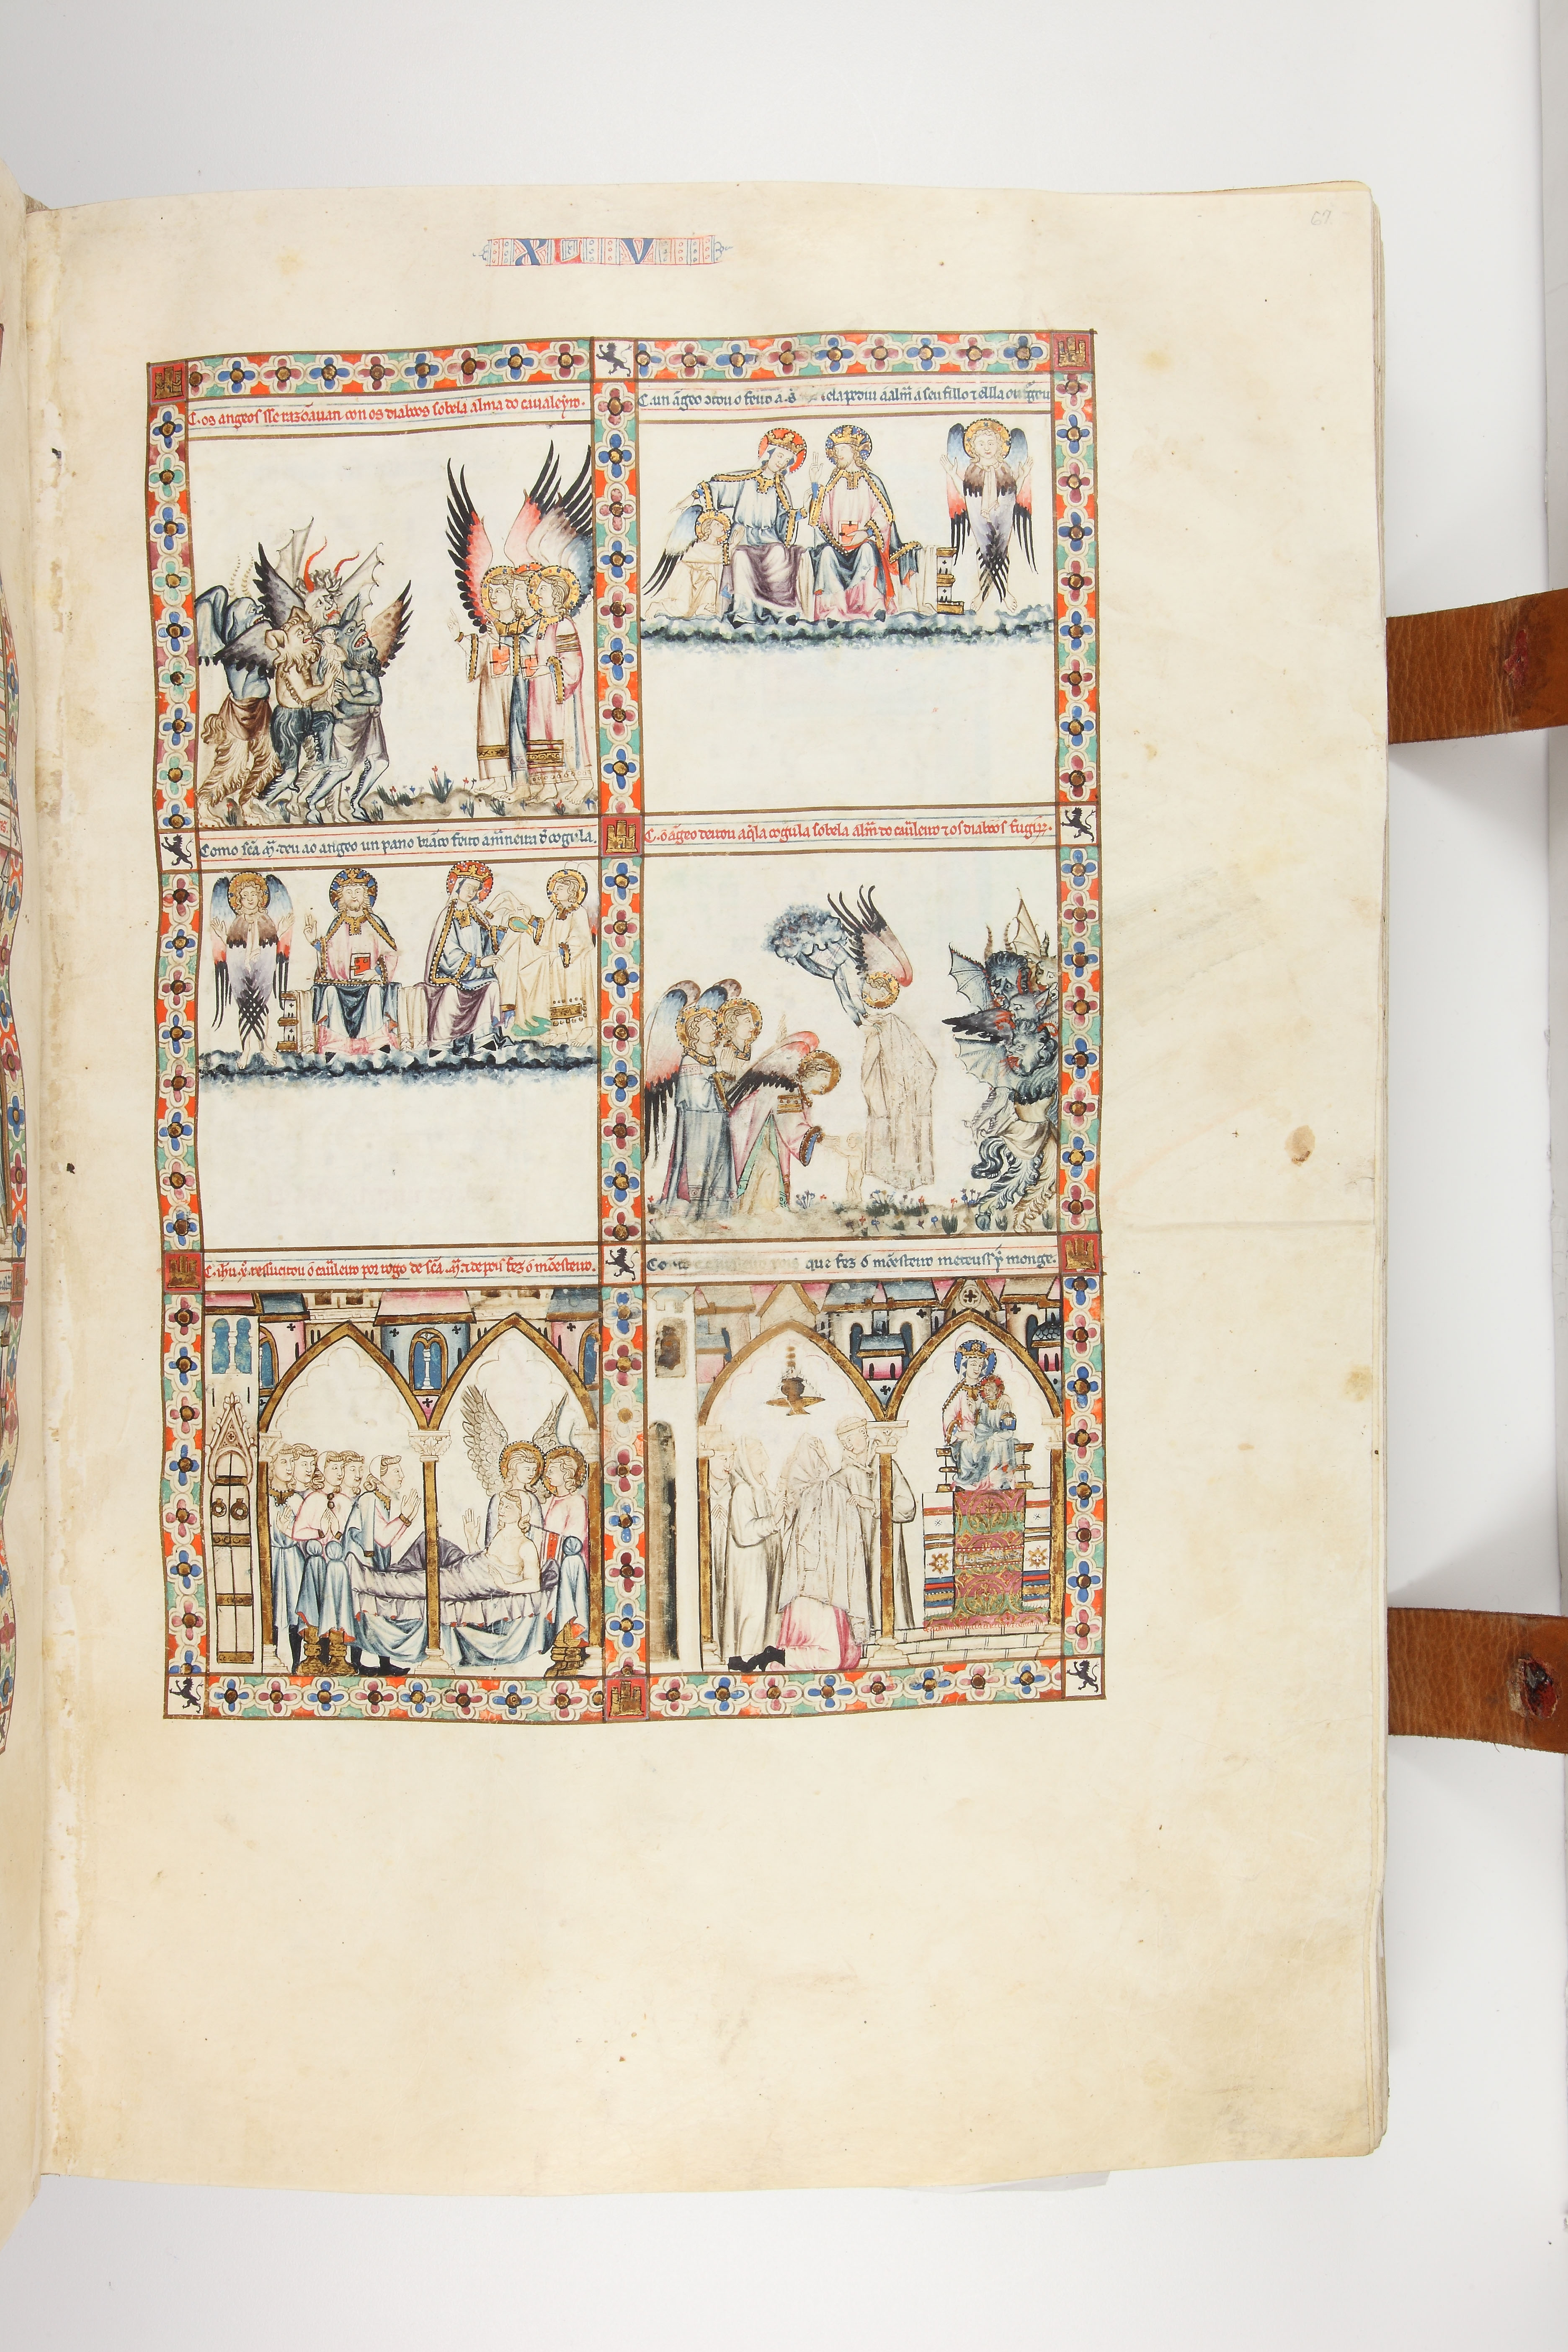 67
X L V
C. os angeos sse razõauan con os diabos sobela alma do caualeyro.
C. un ãgeo cõtou o feito a. S ela pediu a alm̃ a seu fillo ⁊ ella
Como sc̃a m̃. deu ao angeo un pano brãco feito a mãneira de cogula.
C. o ãgeo deitou aq̃la cogula sobela alm̃ do caũleiro ⁊ os diabos fugirõ.
C. ih̃u. x̃. ressucitou o caũleiro por rogo de sc̃a. m̃. ⁊ depois fez o mõesteiro.
Co que fez o mõesteiro meteuss y monge.